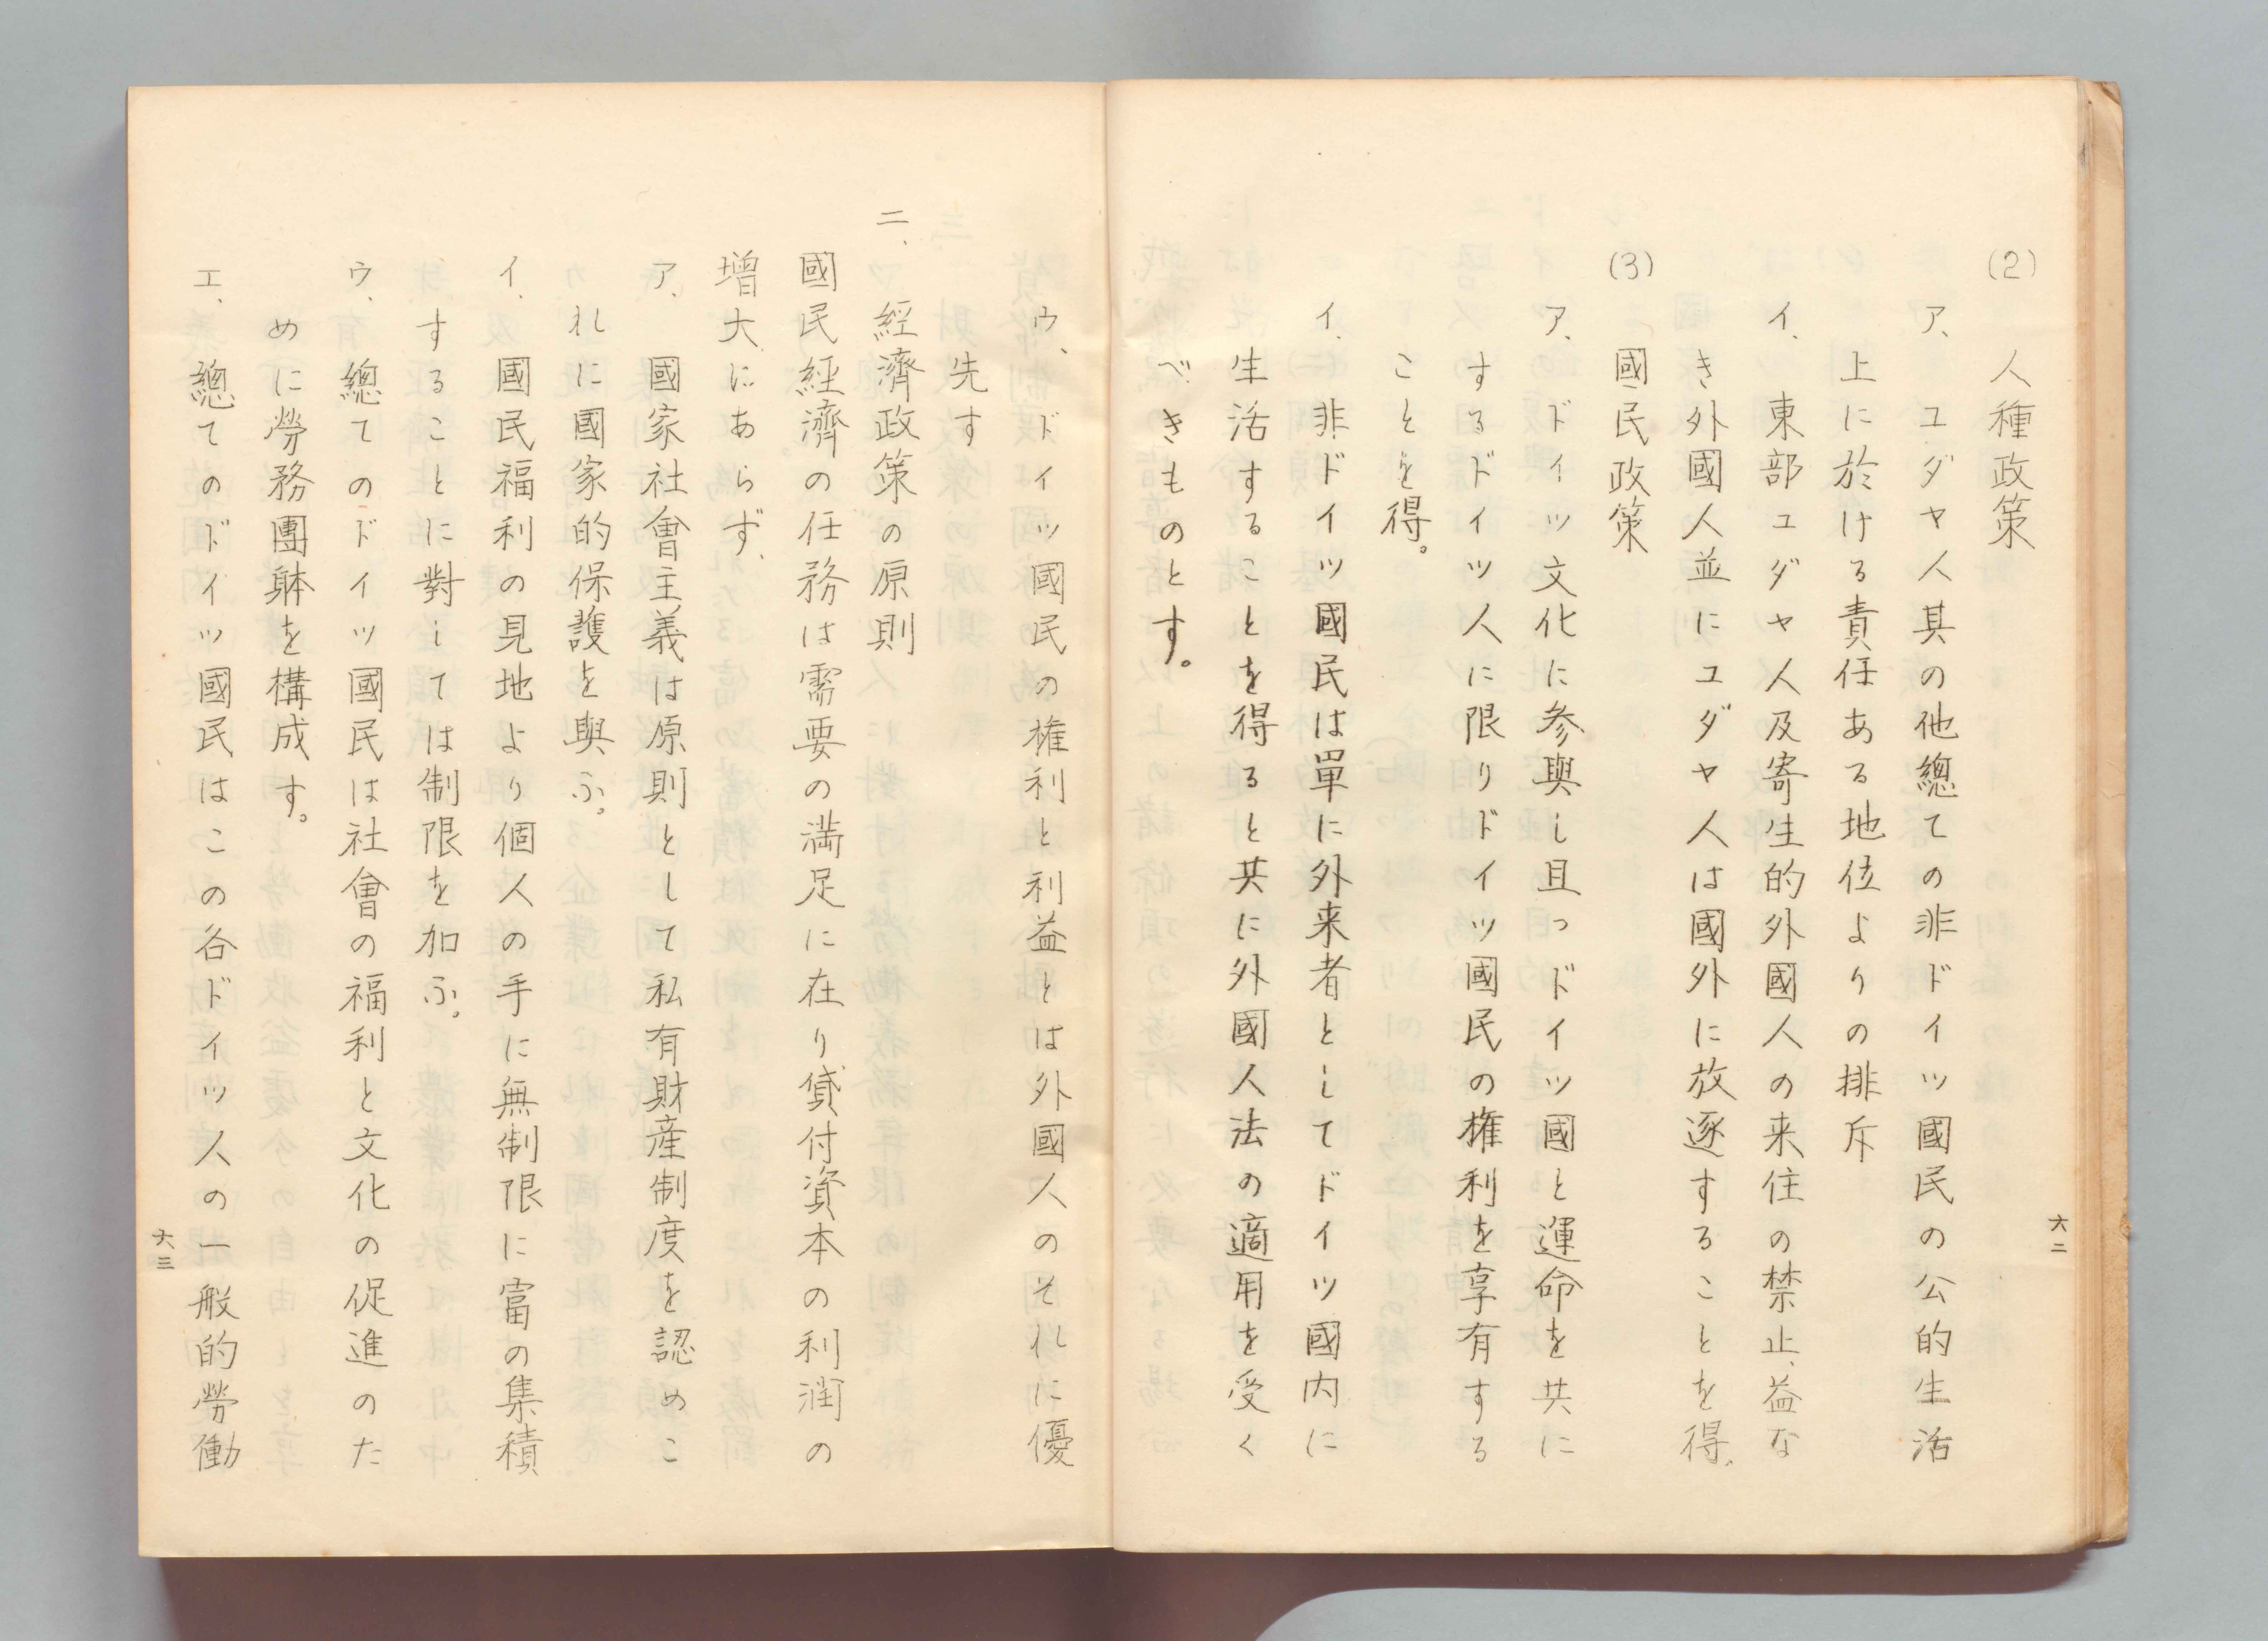 六二
(2) 人種政策
ア、ユダヤ人其の他總ての非ドイツ國民の公的生活
上に於ける責任ある地位よりの排斥
イ、東部ユダヤ人及寄生的外國人の来住の禁止、益な
き外國人並にユダヤ人は國外に放逐することを得。
(3) 國民政策
ア、ドイツ文化に参與し且つドイツ國と運命を共に
するドイツ人に限りドイツ國民の権利を享有する
ことを得。
イ、非ドイツ國民は單に外来者としてドイツ國内に
生活することを得ると共に外國人法の適用を受く
べきものとす。
ウ、ドイツ國民の権利と利益とは外國人のそれに優
先す
二、經濟政策の原則
國民經濟の任務は需要の満足に在り貸付資本の利潤の
増大にあらず、
ア、國家社會主義は原則として私有財産制度を認めこ
れに國家的保護を與ふ。
イ、國民福利の見地より個人の手に無制限に富の集積
することに對しては制限を加ふ。
ウ、總てのドイツ國民は社會の福利と文化の促進のた
めに勞務團躰を構成す。
エ、總てのドイツ國民はこの各ドイツ人の一般的勞働
六三